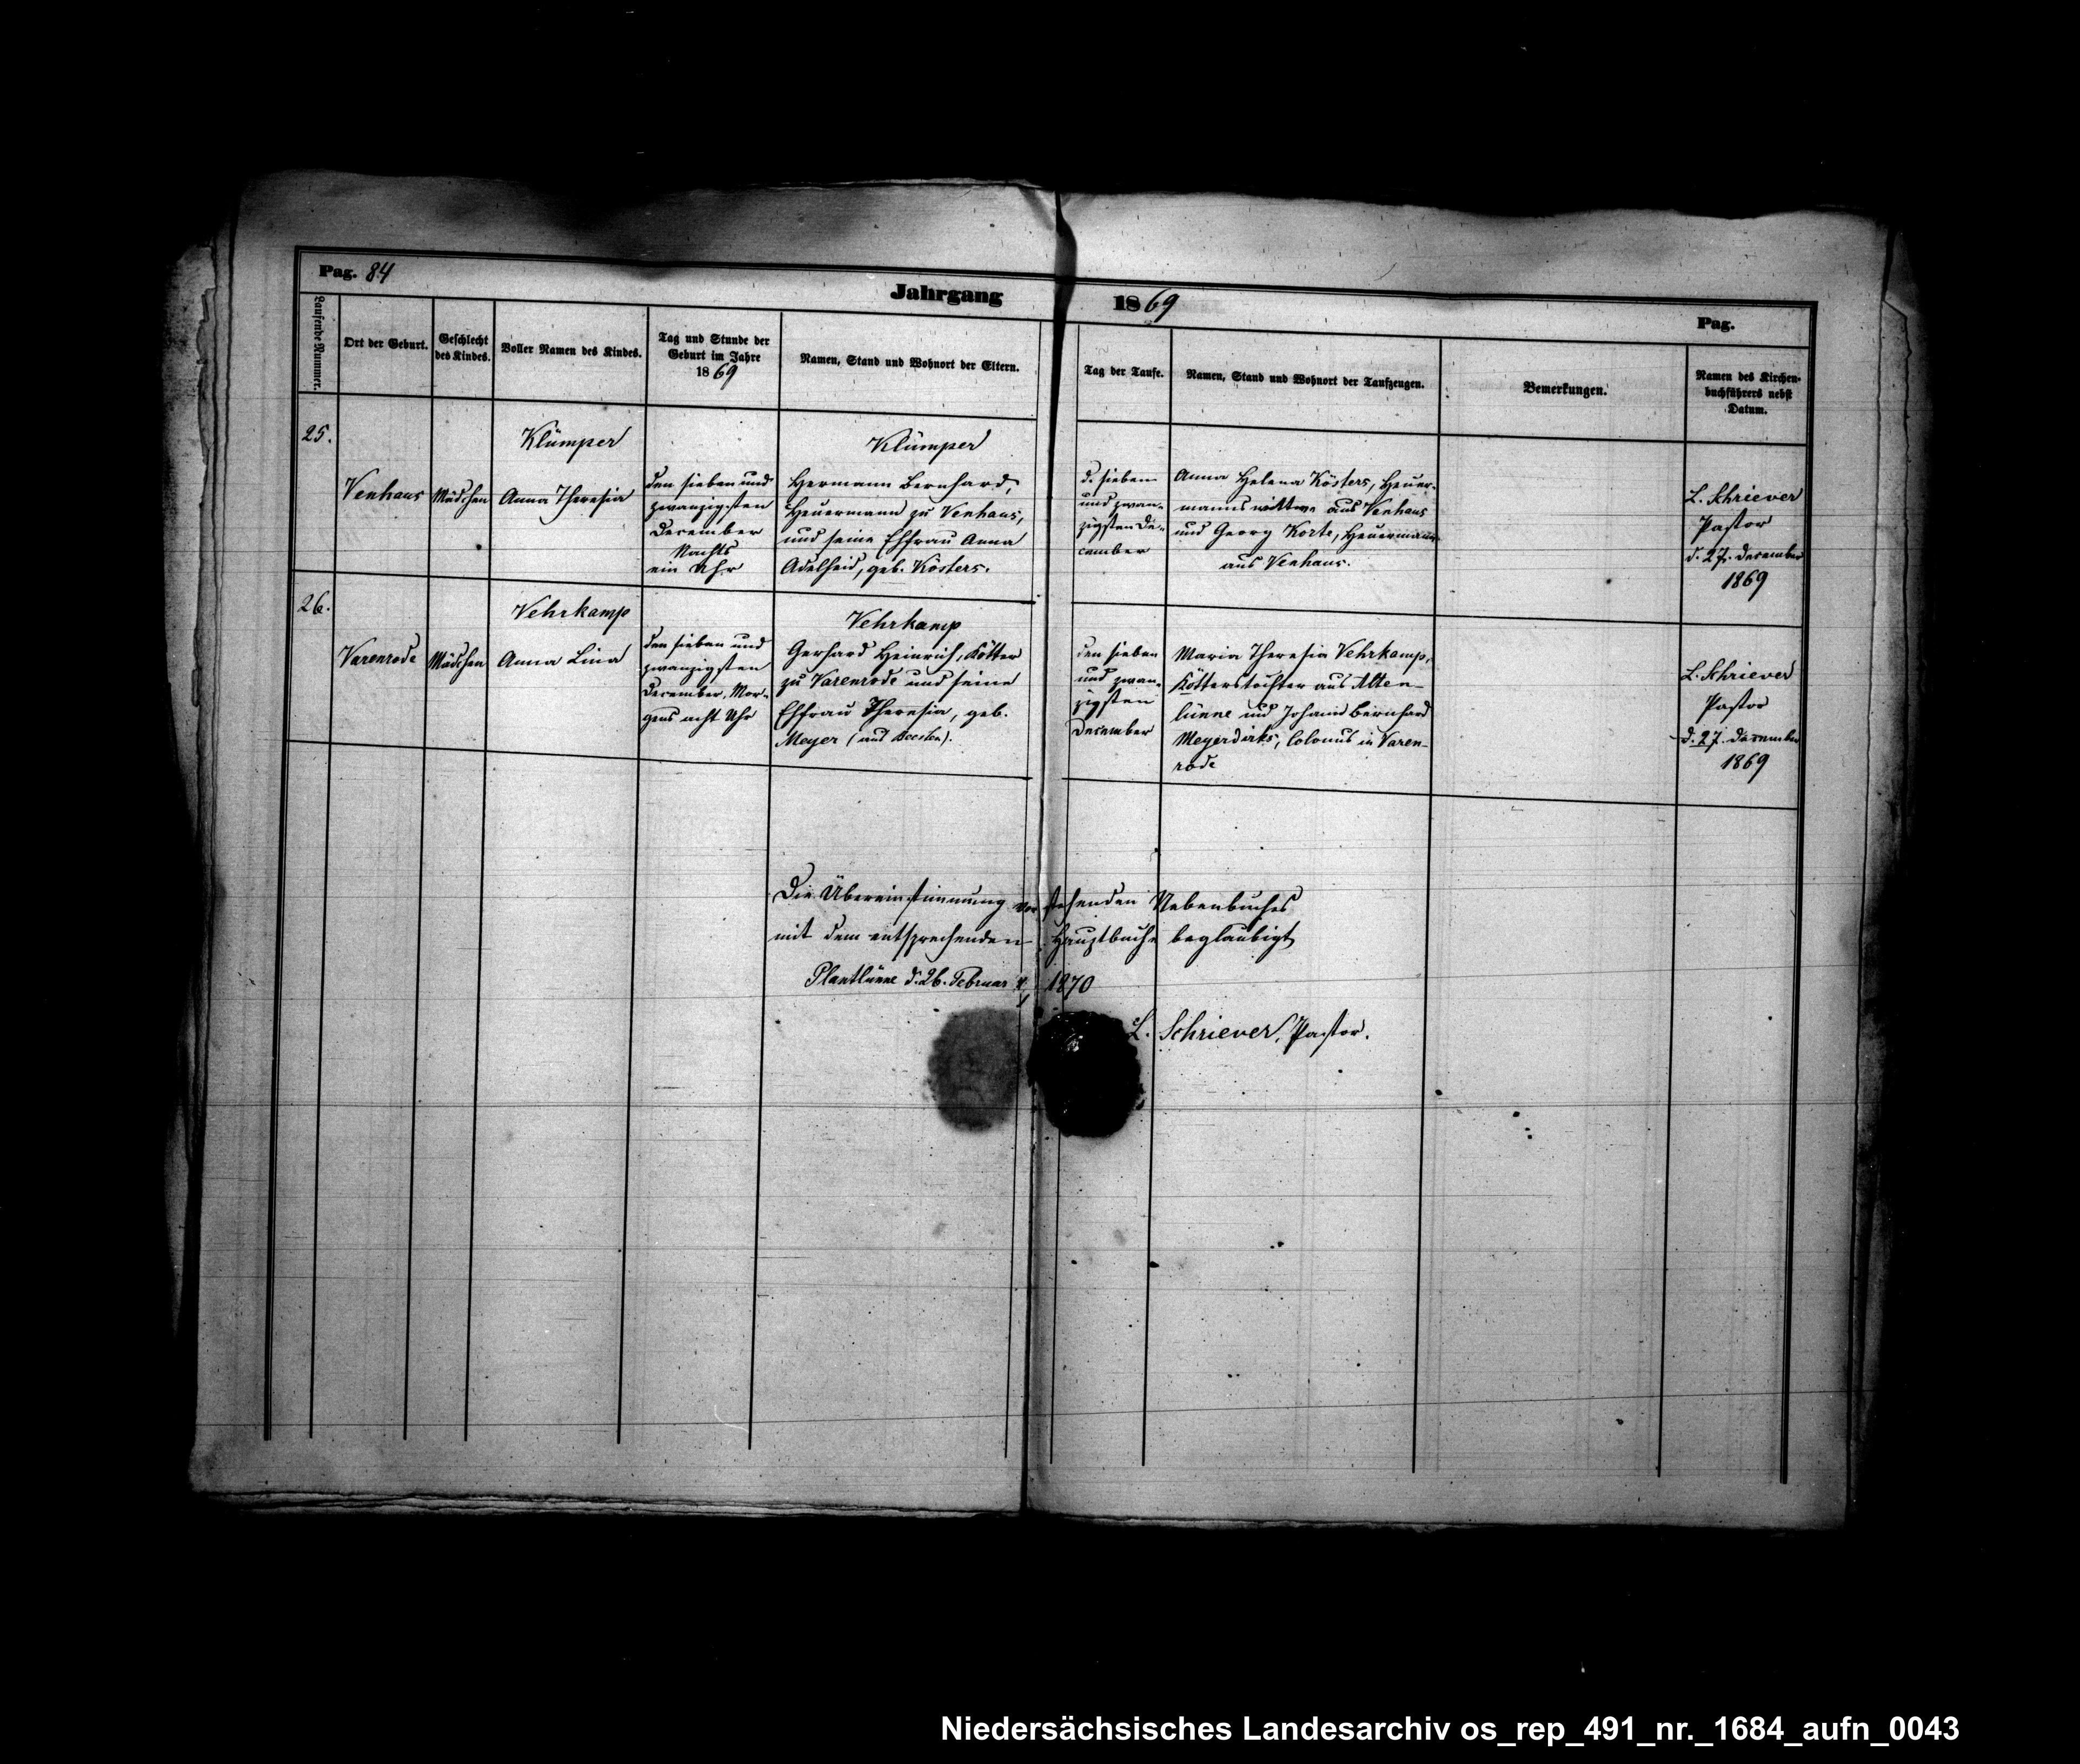 Pag. 84
Jahrgang 1869
Pag.
Laufende Nummer.
Ort der Geburt.
Geschlecht
des Kindes.
Voller Namen des Kindes.
Tag und Stunde der
Geburt im Jahre
1869
Namen, Stand und Wohnort der Eltern.
Tag der Taufe.
Namen, Stand und Wohnort der Taufzeugen.
Bemerkungen.
Namen des Kirchen-
buchführers nebst
Datum.
25.
Venhaus
Mädchen
Klümper
Anna Theresia
den sieben und
zwanzigsten
December
Nachts
ein Uhr
Klümper
Hermann Bernhard,
Heuermann zu Venhaus,
und seine Ehfrau Anna
Adelheid, geb. Kösters.
d. sieben
und zwan-
zigsten De-
cember
Anna Helena Kösters, Heuer-
mannswittwe aus Venhaus
und Georg Korte, Heuermann
aus Venhaus.
L. Schriever
Pastor
d. 27. December
1869
26.
Varenrode
Mädchen
Vehrkamp
Anna Lina
den sieben und
zwanzigsten
December, Mor-
gens acht Uhr
Vehrkamp
Gerhard Heinrich, Kötter
zu Varenrode und seine
Ehfrau Theresia, geb.
Meyer (aus Beesten).
den sieben
und zwan-
zigsten
December
Maria Theresia Vehrkamp,
Kötterstochter aus Alten-
lünne und Johann Bernhard
Meyerdirks, Colonus in Varen-
rode
L. Schriever
Pastor
d. 27. December
1869
Die Übereinstimmung vorstehenden Nebenbuches
mit dem entsprechenden Hauptbuche beglaubigt
Plantlünne d. 26. Februar 1870
L. Schriever, Pastor.
Niedersächsisches Landesarchiv os_rep_491_nr._1684_aufn_0043